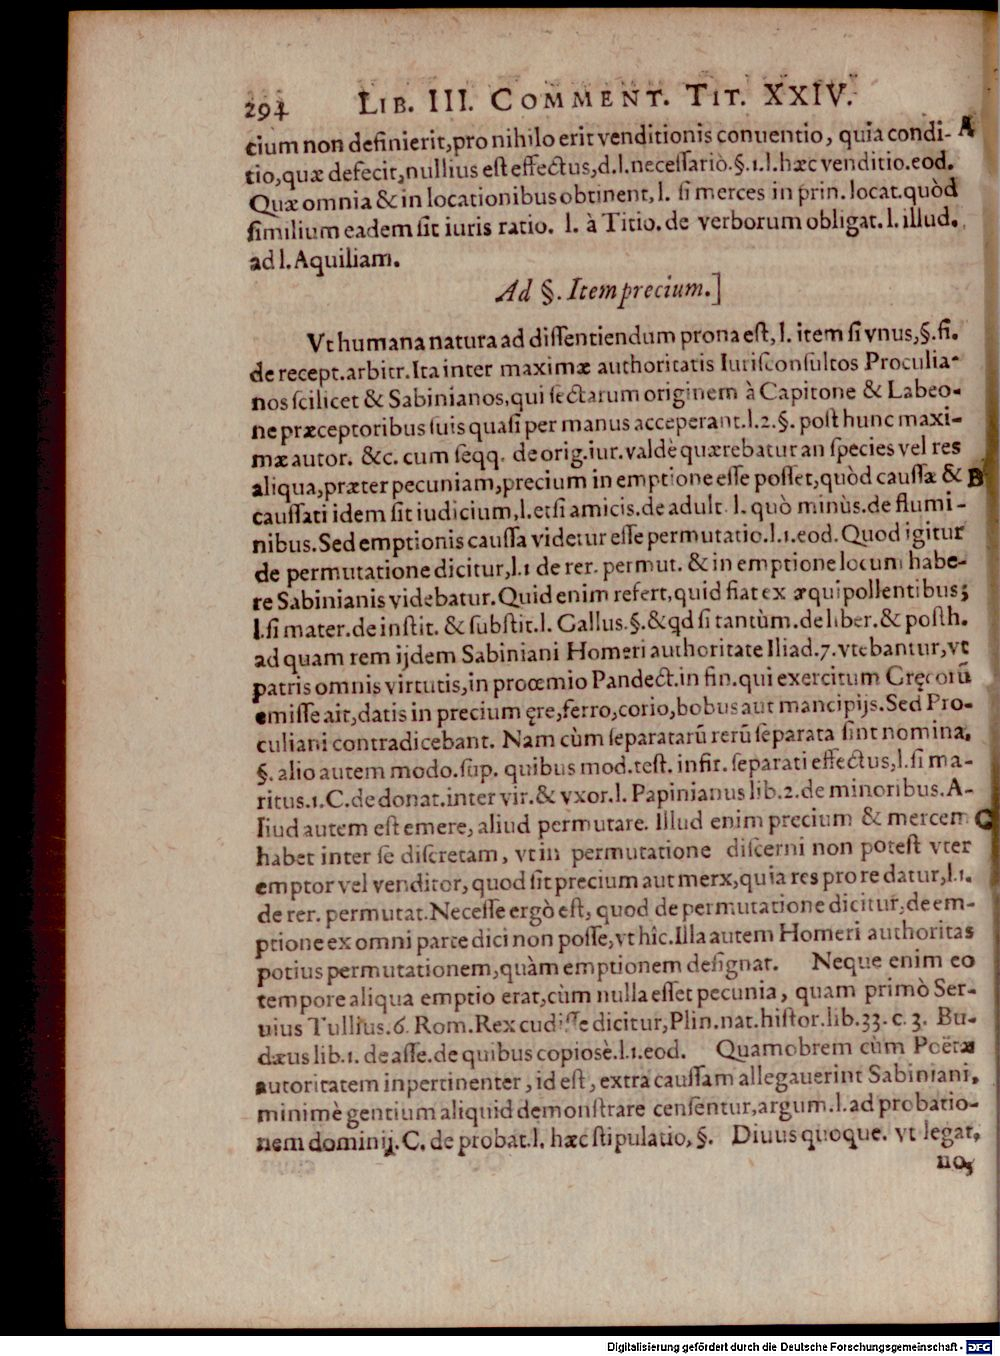 294 LIB. III. COMMENT. TIT. XXIV.
cium non definierit, pro nihilo erit venditionis conuentio, quia condi- A
tio, quæ defecit, nullius est effectus, d. l. necessariò. §. 1. l. hæc venditio. eod.
Quæ omnia & in locationibus obtinent, l. si merces in prin. locat. quòd
similium eadem sit iuris ratio. l. à Titio. de verborum obligat. l. illud.
ad l. Aquiliam.
Ad §. Item precium.]
Vt humana natura ad dissentiendum prona est, l. item si vnus, §. fi.
de recept. arbitr. Ita inter maximæ authoritatis Iurisconsultos Proculia-
nos scilicet & Sabinianos, qui sectarum originem à Capitone & Labeo-
ne præceptoribus suis quasi per manus acceperant. l. 2. §. post hunc maxi-
mæ autor. &c. cum seqq. de orig. iur. valdè quærebatur an species vel res
aliqua, præter pecuniam, precium in emptione esse posset, quòd caussæ & B
caussati idem sit iudicium, l. etsi amicis. de adult. l. quò minùs. de flumi-
nibus. Sed emptionis caussa videtur esse permutatio. l. 1. eod. Quod igitur
de permutatione dicitur, l. 1 de rer. permut. & in emptione locum habe-
re Sabinianis videbatur. Quid enim refert, quid fiat ex æquipollentibus;
l. si mater. de instit. & substit. l. Gallus. §. & qd si tantùm. de liber. & posth.
ad quam rem ijdem Sabiniani Homeri authoritate Iliad. 7. vtebantur, vt
patris omnis virtutis, in proœmio Pandect. in fin. qui exercitum Gręcorũ
emisse ait, datis in precium ęre, ferro, corio, bobus aut mancipijs. Sed Pro-
culiani contradicebant. Nam cùm separatarũ rerũ separata sint nomina,
§. alio autem modo. sup. quibus mod. test. infir. separati effectus, l. si ma-
ritus. 1. C. de donat. inter vir. & vxor. l. Papinianus lib. 2. de minoribus. A-
liud autem est emere, aliud permutare. Illud enim precium & mercem C
habet inter se discretam, vt in permutatione discerni non potest vter
emptor vel venditor, quod sit precium aut merx, quia res pro re datur, l. 1.
de rer. permutat. Necesse ergò est, quod de permutatione dicitur, de em-
ptione ex omni parte dici non posse, vt hîc. Illa autem Homeri authoritas
potius permutationem, quàm emptionem designat. Neque enim eo
tempore aliqua emptio erat, cùm nulla esset pecunia, quam primò Ser-
uius Tullius. 6. Rom. Rex cudisse dicitur, Plin. nat. histor. lib. 33. c. 3. Bu-
dæus lib. 1. de asse. de quibus copiosè. l. 1. eod. Quamobrem cùm Poëtæ
autoritatem inpertinenter, id est, extra caussam allegauerint Sabiniani,
minimè gentium aliquid demonstrare censentur, argum. l. ad probatio-
nem dominij. C. de probat. l. hæc stipulatio, §. Diuus quoque. vt legat,
no,
Digitalisierung gefördert durch die Deutsche Forschungsgemeinschaft - DFG